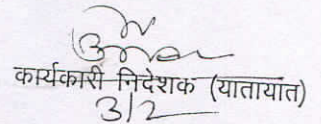 कार्यकारी निदेशक (यातायात)
3/2